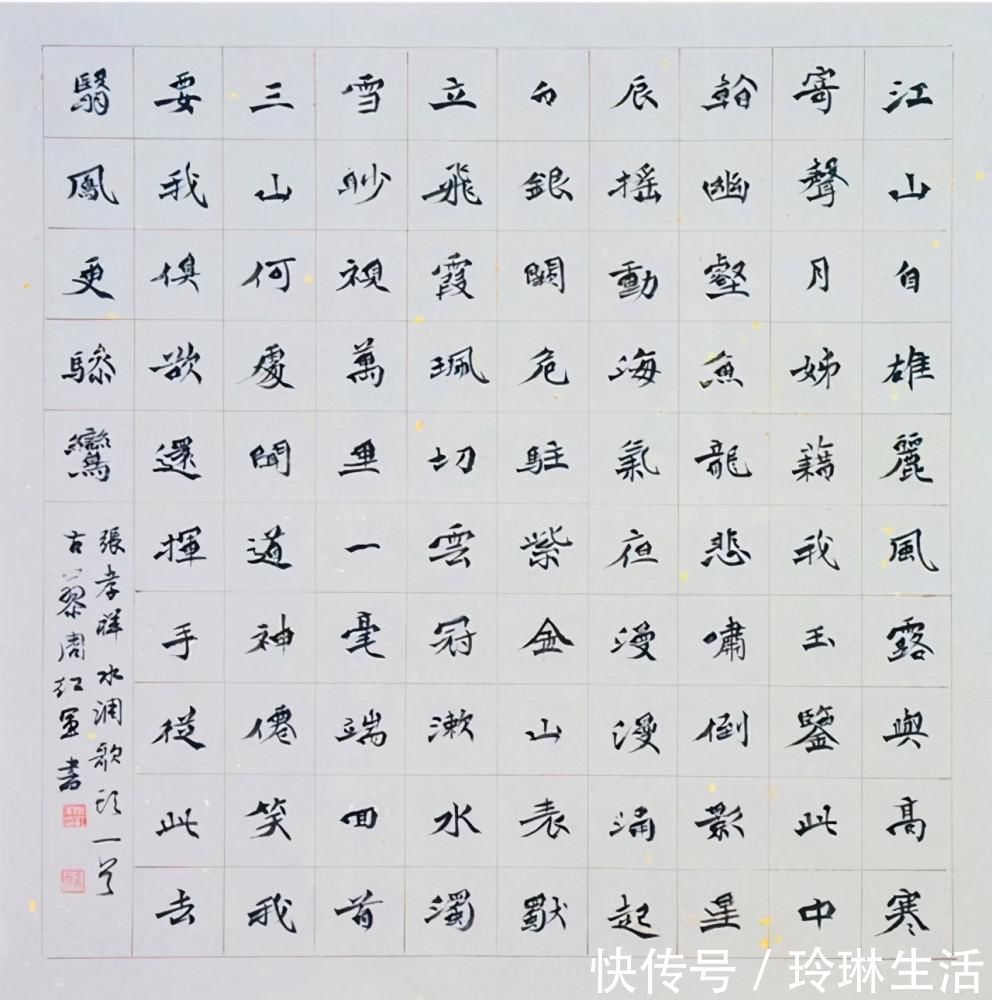 江山自雄麗風露與高寒
寄聲月姊藉我玉鑒此中
幽壑魚龍悲嘯倒影星
辰摇動海氣夜漫漫涌起
白銀闕危駐紫金山表獨
立飛霞珮切雲冠漱水濁
雪眇視萬里一毫端回首
三山何處聞道神僊笑我
要我俱欲還揮手從此去
翳鳳更驂鸞
張孝祥水調歌頭一首
古黎周红軍書
快传号 / 玲琳生活